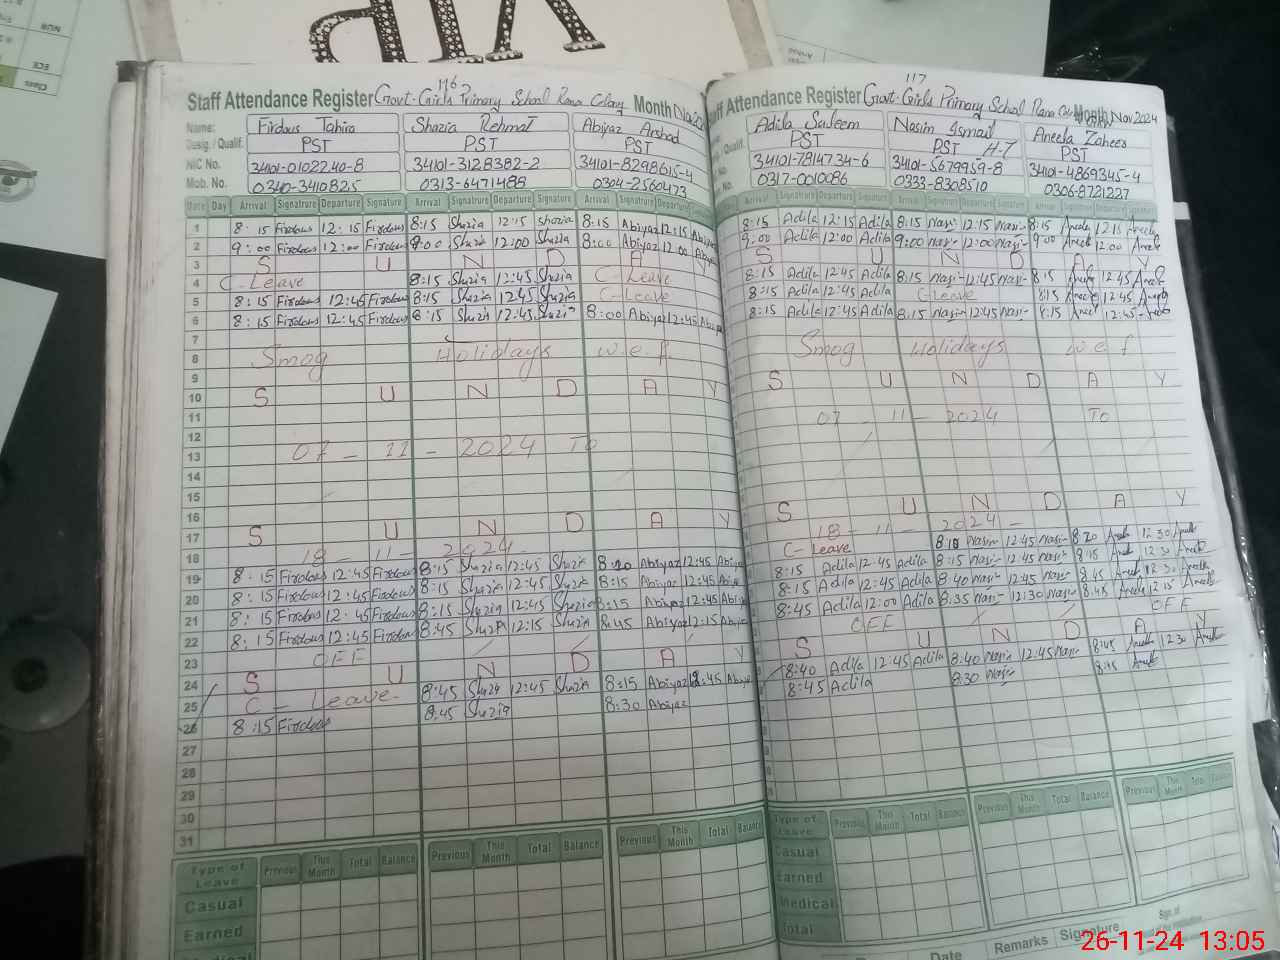 VIP
116
Staff Attendance Register Govt. Girls Primary School Rana Colony Month Nov 20
Name: Firdous Tahira Shazia Rehmat Abiyaz Arshad
Desig. / Qualif. PST PST PST
NIC No. 34101-0102240-8 34101-3128382-2 34101-8298615-4
Mob. No. 0340-3410825 0313-6471488 0304-2560473
Date Day Arrival Signature Departure Signature Arrival Signature Departure Signature Arrival Signature Departure
1 8:15 Firdous 12:15 Firdous 8:15 Shazia 12:15 Shazia 8:15 Abiyaz 12:15 Abiyaz
2 9:00 Firdous 12:00 Firdous 9:00 Shazia 12:00 Shazia 8:00 Abiyaz 12:00 Abiyaz
3 S U N D A
4 C-Leave 8:15 Shazia 12:45 Shazia C-Leave
5 8:15 Firdous 12:45 Firdous 8:15 Shazia 12:45 Shazia C-Leave
6 8:15 Firdous 12:45 Firdous 8:15 Shazia 12:45 Shazia 8:00 Abiyaz 12:45 Abiyaz
7
8 Smog Holidays w.e.f.
9
10 S U N D A Y
11
12
13 07 - 11 - 2024 To
14
15
16
17 S U N D A Y
18 - 11 - 2024
18 8:15 Firdous 12:45 Firdous 8:15 Shazia 12:45 Shazia 8:20 Abiyaz 12:45 Abiyaz
19 8:15 Firdous 12:45 Firdous 8:15 Shazia 12:45 Shazia 8:15 Abiyaz 12:45 Abiyaz
20 8:15 Firdous 12:45 Firdous 8:15 Shazia 12:45 Shazia 8:15 Abiyaz 12:45 Abiyaz
21 8:15 Firdous 12:45 Firdous 8:45 Shazia 12:15 Shazia 8:45 Abiyaz 12:15 Abiyaz
22
23 OFF
24 S U N D A Y
25 C-Leave 8:45 Shazia 12:45 Shazia 8:15 Abiyaz 12:45 Abiyaz
26 8:15 Firdous 8:45 Shazia 8:30 Abiyaz
27
28
29
30
31
Type of Leave Previous This Month Total Balance Previous This Month Total Balance Previous This Month Total Balance
Casual
Earned
117
Attendance Register Govt. Girls Primary School Rana Colony Month Nov 2024
Adila Saleem Nasim Ismail Aneela Zaheer
PST PST H-T PST
34101-7814734-6 34101-5679959-8 34101-4869345-4
0317-0010086 0333-8308510 0306-8721227
Arrival Signature Departure Signature Arrival Signature Departure Signature Arrival
8:15 Adila 12:15 Adila 8:15 Nasim 12:15 Nasim 8:15 Aneela 12:15 Aneela
9:00 Adila 12:00 Adila 9:00 Nasim 12:00 Nasim 9:00 Aneela 12:00 Aneela
S U N D A Y
8:15 Adila 12:45 Adila 8:15 Nasim 12:45 Nasim 8:15 Aneela 12:45 Aneela
8:15 Adila 12:45 Adila C-Leave 8:15 Aneela 12:45 Aneela
8:15 Adila 12:45 Adila 8:15 Nasim 12:45 Nasim 8:15 Aneela 12:45 Aneela
Smog Holidays w.e.f
S U N D A Y
07 - 11 - 2024 To
S U N D A Y
18 - 11 - 2024 -
C-Leave 8:10 Nasim 12:45 Nasim 8:20 Aneela 12:30 Aneela
8:15 Adila 12:45 Adila 8:15 Nasim 12:45 Nasim 8:15 Aneela 12:30 Aneela
8:15 Adila 12:45 Adila 8:40 Nasim 12:45 Nasim 8:45 Aneela 12:30 Aneela
8:45 Adila 12:00 Adila 8:35 Nasim 12:30 Nasim 8:45 Aneela 12:15 Aneela
OFF OFF
S U N D A Y
8:40 Adila 12:45 Adila 8:40 Nasim 12:45 Nasim 8:45 Aneela 12:30 Aneela
8:45 Adila 8:30 Nasim 8:45 Aneela
Type of Leave Previous This Month Total Balance Previous This Month Total Balance Previous This Month Total Balance
Casual
Earned
Medical
Total
Date Remarks Signature
26-11-24 13:05